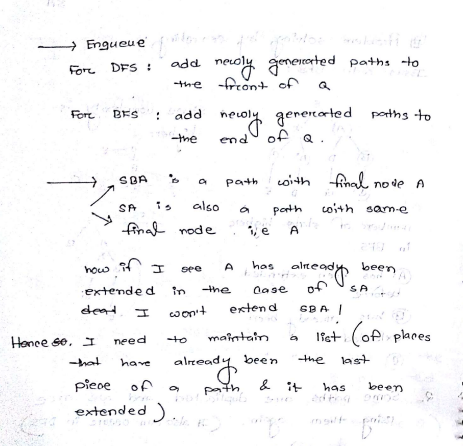 → Enqueue
For DFS : add newly generated paths to
the front of Q
For BFS : add newly generated paths to
the end of Q.
→ SBA is a path with final node A
SA is also a path with same
final node . i,e A
now if I see A has already been
extended in the case of SA
I won't extend SBA !
Hence so, I need to maintain a list (of places
that have already been the last
piece of a path & it has been
extended).